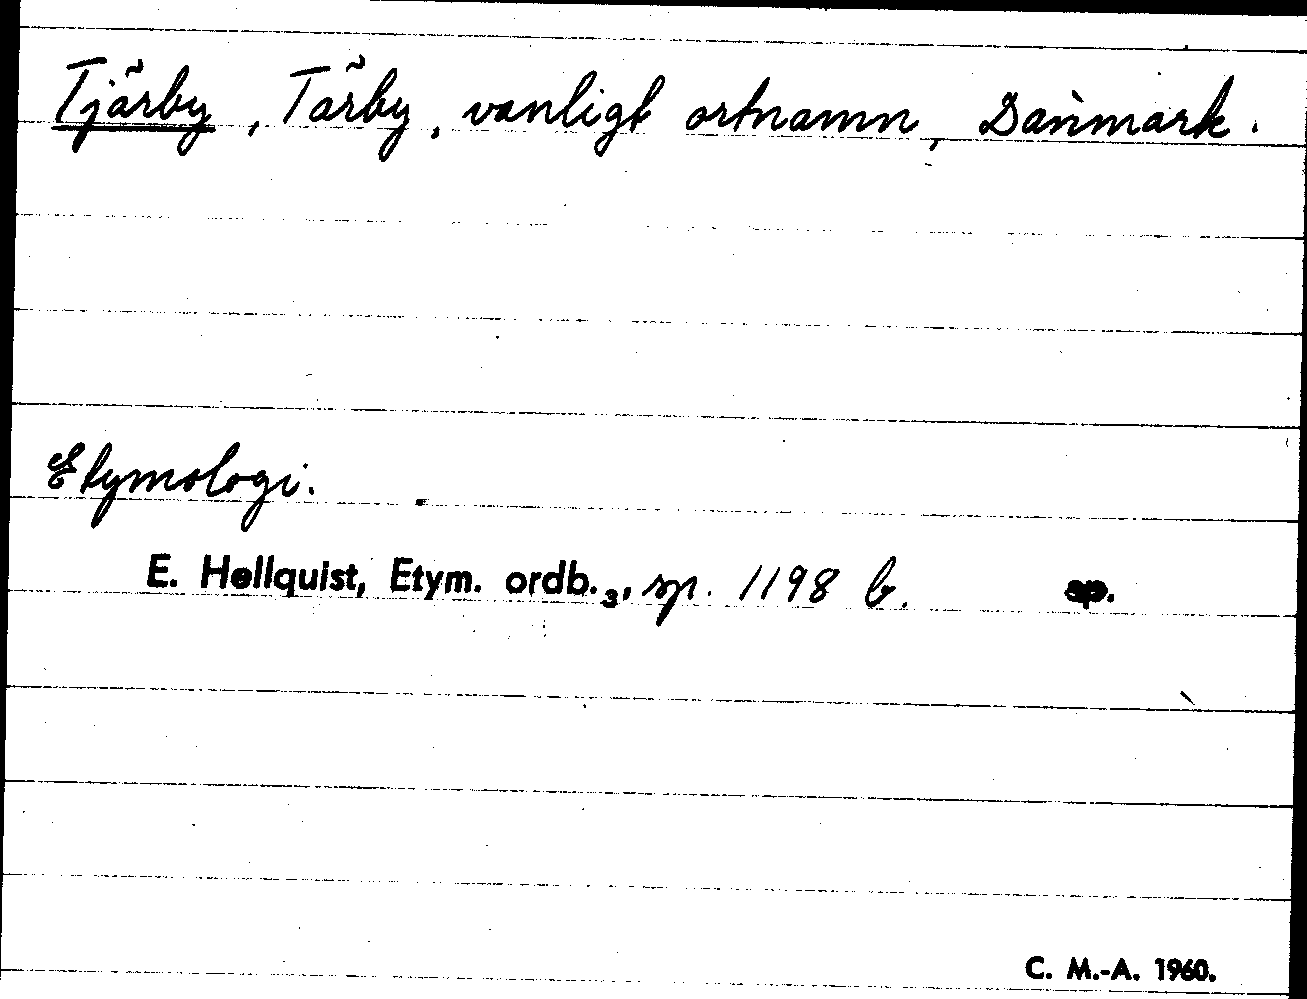 Tjärby, Tärby, vanligt ortnamn, Danmark.
Etymologi.
E. Hellquist, Etym. ordb.₃, sp. 1198 b. sp.
C. M.-A. 1960.